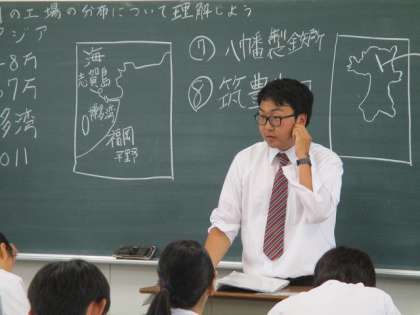 の工場の分布について理解しよう
アジア
8万
7万
多湾
011
海
志賀島
博多湾
福岡
平野
⑦ 八幡製鉄所
⑧ 筑豊